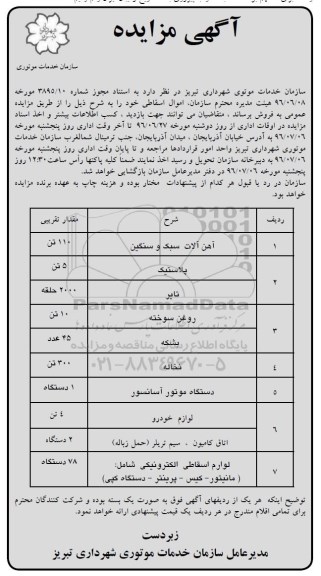 آگهی مزایده
سازمان خدمات موتوری
سازمان خدمات موتوری شهرداری تبریز در نظر دارد به استناد مجوز شماره ۳۸۹۵/۱۰ مورخه
۹۶/۰۶/۰۸ هیئت مدیره محترم سازمان، اموال اسقاطی خود را به شرح ذیل را از طریق مزایده
عمومی به فروش برساند ، متقاضیان می توانند جهت بازدید ، کسب اطلاعات بیشتر و اخذ اسناد
مزایده در اوقات اداری از روز دوشنبه مورخه ۹۶/۰۶/۲۷ تا آخر وقت اداری روز پنجشنبه مورخه
۹۶/۰۷/۰۶ به آدرس خیابان آذربایجان ، میدان آذربایجان، جنب ترمینال شمالغرب سازمان خدمات
موتوری شهرداری تبریز واحد امور قراردادها مراجعه و تا پایان وقت اداری روز پنجشنبه مورخه
۹۶/۰۷/۰۶ به دبیرخانه سازمان تحویل و رسید اخذ نمایند ضمنا کلیه پاکتها رأس ساعت ۱۲:۳۰ روز
پنجشنبه مورخه ۹۶/۰۷/۰۶ در دفتر مدیرعامل سازمان بازگشایی خواهد شد.
سازمان در رد یا قبول هر کدام از پیشنهادات مختار بوده و هزینه چاپ به عهده برنده مزایده
خواهد بود.
ردیف شرح مقدار تقریبی
۱ آهن آلات سبک و سنگین ۱۱۰ تن
۲ پلاستیک ۵ تن
تایر ۲۰۰۰ حلقه
۳ روغن سوخته ۱۰ تن
بشکه ۲۵ عدد
۴ نخاله ۳۰۰ تن
۵ دستگاه موتور آسانسور ۱ دستگاه
۶ لوازم خودرو ۴ تن
اتاق کامیون ، سیم تریلر (حمل زباله) ۲ دستگاه
۷ لوازم اسقاطی الکترونیکی شامل: ۷۸ دستگاه
( مانیتور- کیس - پرینتر - دستگاه کپی)
ParsNamadData
پایگاه اطلاع رسانی مناقصه و مزایده
۰۲۱-۸۸۳۴۹۶۷۰-۵
توضیح اینکه هر یک از ردیفهای آگهی فوق به صورت یک بسته بوده و شرکت کنندگان محترم
برای تمامی اقلام مندرج در هر ردیف یک قیمت پیشنهادی ارائه خواهد نمود.
زیردست
مدیرعامل سازمان خدمات موتوری شهرداری تبریز